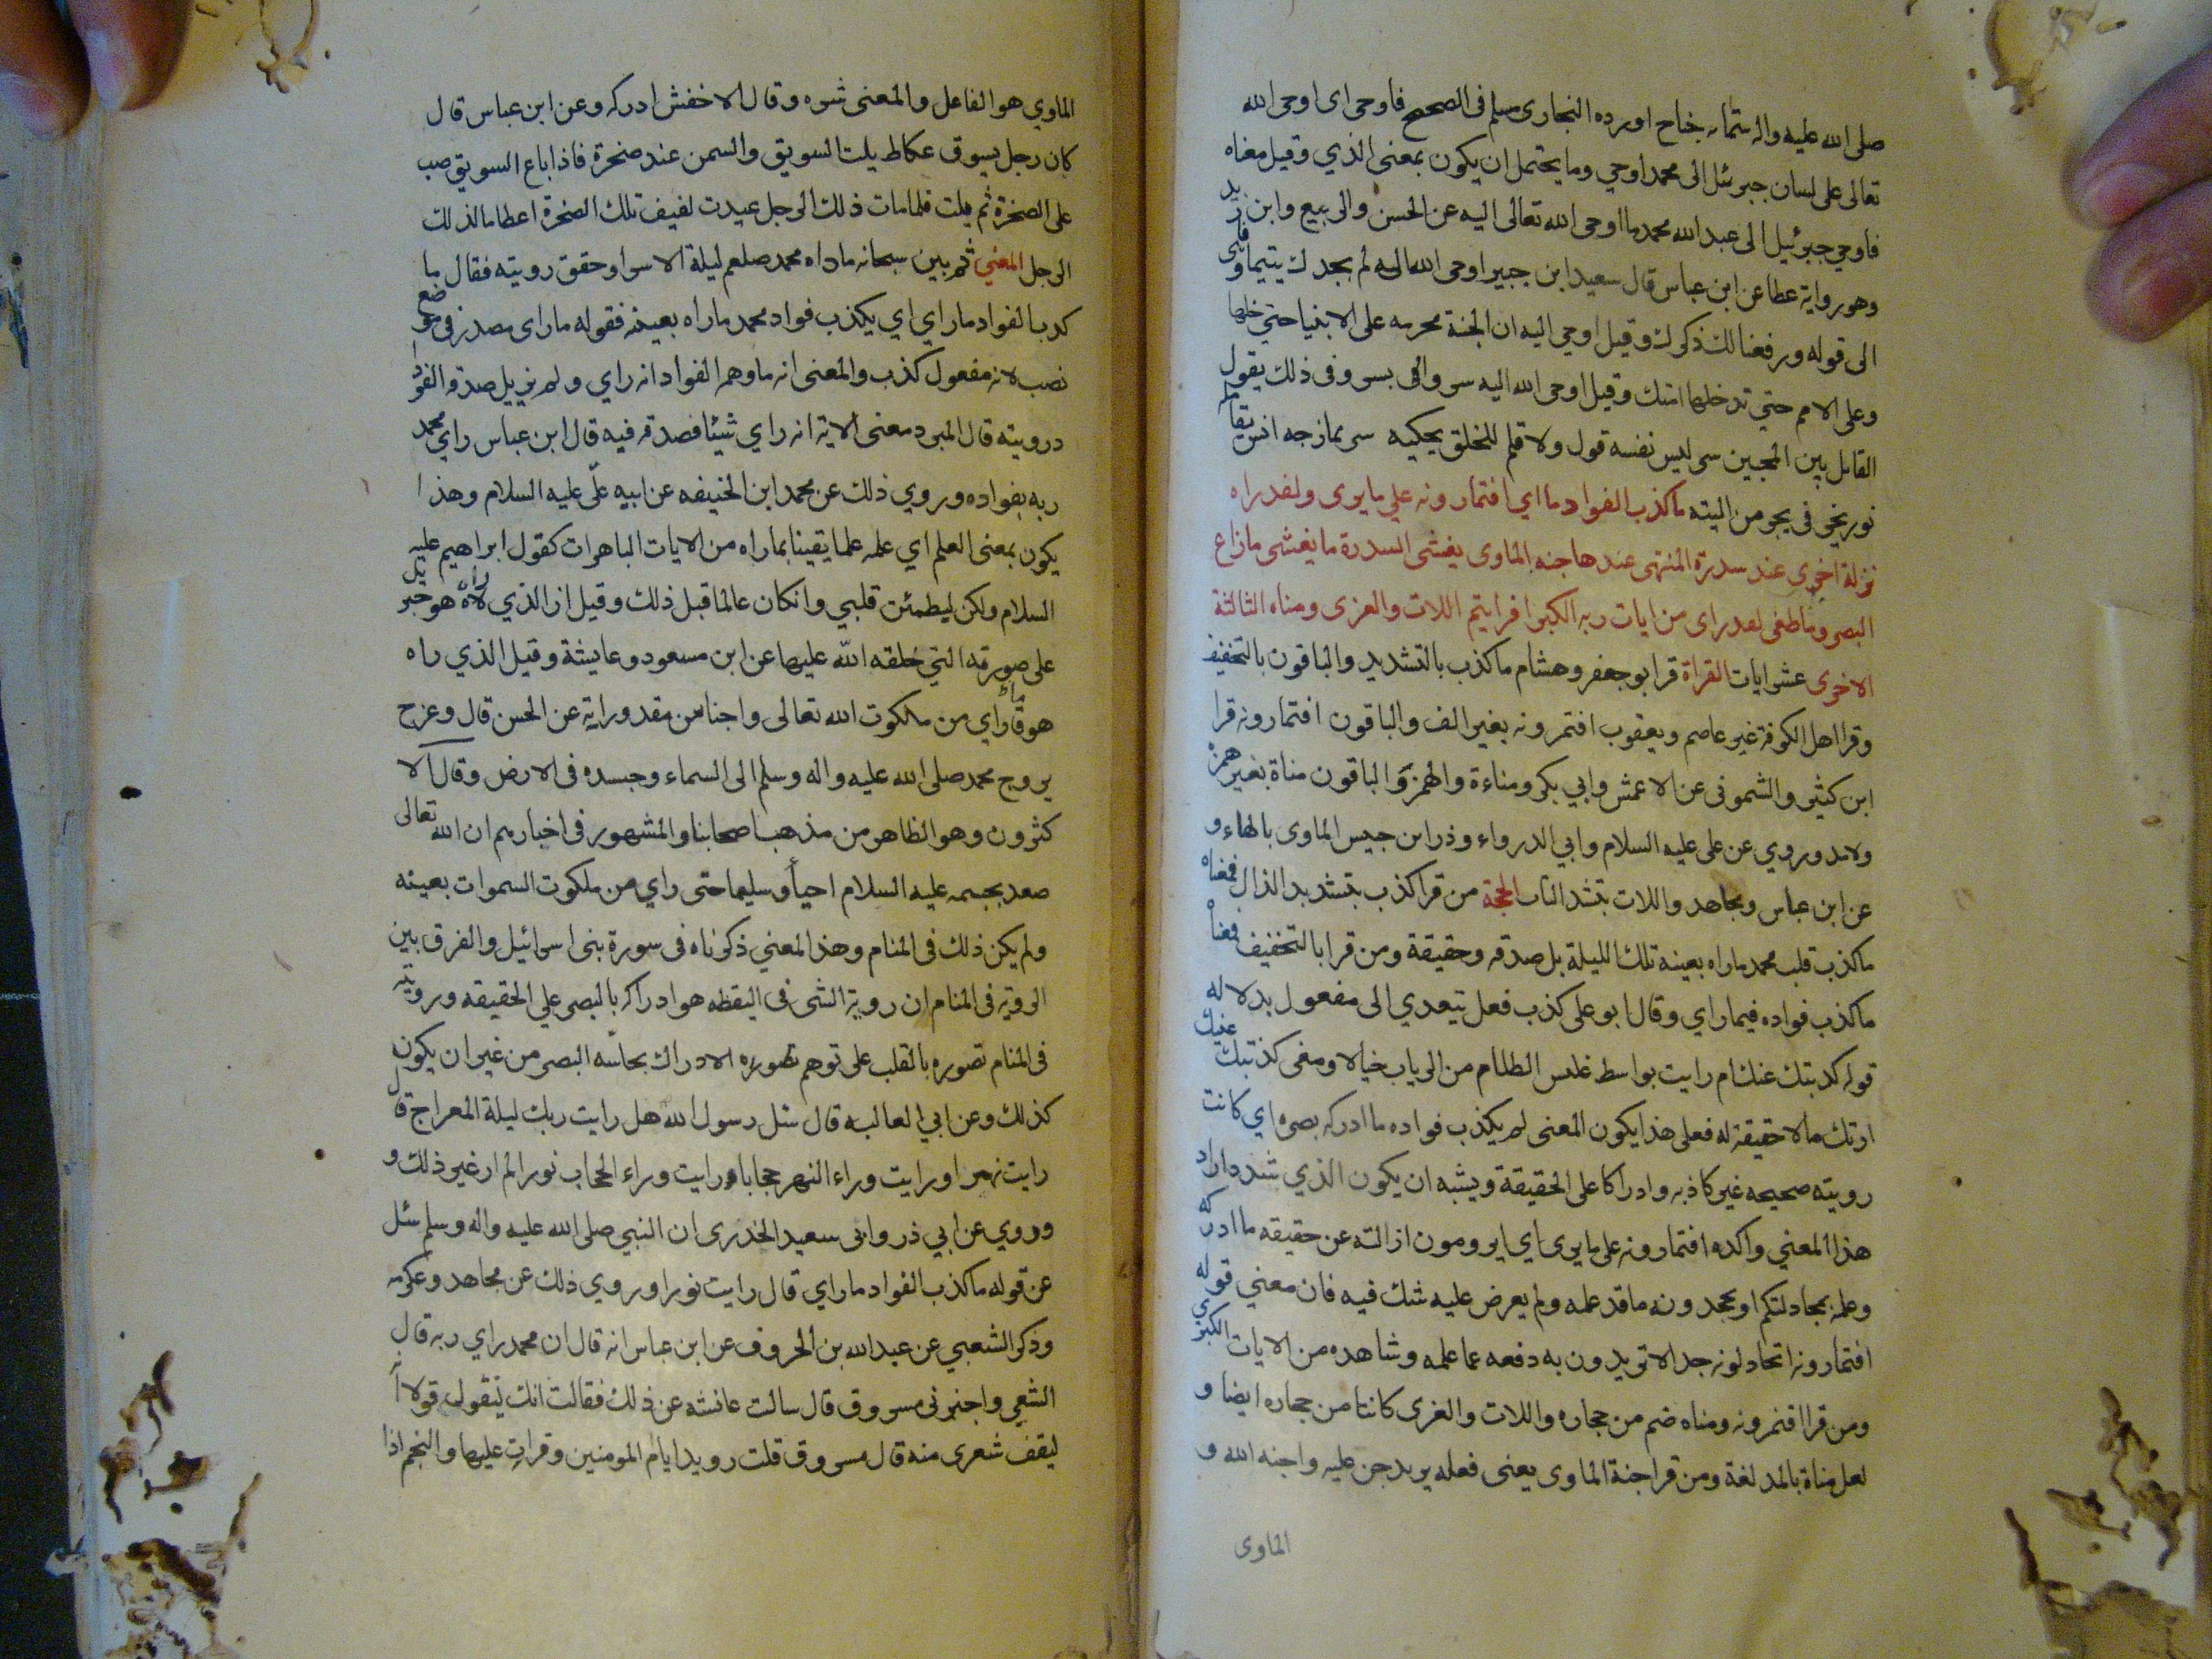 صلى الله عليه واله ستمائه جناح اورده البخارى مسلم فى الصحيح فاوحى اى اوحى الله
تعالى على لسان جبرئل الى محمد اوحي وما يحتمل ان يكون بمعنى الذي وقيل معناه
فاوحي جبرئيل الى عبد الله محمد ما اوحى الله تعالى اليه عن الحسن والربيع وابن زيد
وهو رواية عطا عن ابن عباس قال سعيد ابن جبير اوحى الله اليه لم يجدك يتيما وفاوى
الى قوله ورفعنا لك ذكرك وقيل اوحي اليه ان الجنة محرمه على الانبيا حتى خلها
وعلى الامم حتي تدخلها امتك وقيل اوحى الله اليه سر والى بسر وفى ذلك يقول
القايل بين المحبين سر ليس نفسه قول ولا قلم للخلق يحكيه سر يمازجه انس يقابله
نور يخي فى بحر من اليته ما كذب الفواد ما اي افتمارونه علي ما يرى ولقد راه
نزلة اخرى عند سدرة المنتهى عندها جنه الماوى يغشى السدرة ما يغشى مازاغ
البصر وما طغى لقد راى من ايات ربه الكبرا افرايتم اللات والعزى ومناه الثالثة
الاخرى عشر ايات القراة قرا بوجعفر وهشام ما كذب بالتشديد والباقون بالتخفيف
وقرا اهل الكوفة غير عاصم ويعقوب افتمرونه بغير الف والباقون افتمارونه قرا
ابن كثير والشمونى عن الاعمش وابي بكر ومناءة والهمزة والباقون مناة بغير همزة
ولا مد وروي عن على عليه السلام وابي الدرواء وذر ابن حبيس الماوى بالهاء و
عن ابن عباس ومجاهد واللات بتشد التاء الحجة من قرا كذب بتشديد الذال فمعناه
ما كذب قلب محمد ماراه بعينه تلك الليلة بل صدقه وحقيقة ومن قرا بالتخفيف فمعناه
ما كذب فواده فيما راي وقال ابو على كذب فعل تيعدي الى مفعول بدلاله
قوله كدبتك عنك ام رايت بواسط غلس الظلام من الرباب خيالا ومعى كذبتك عنيك
ارتك مالا حقيقة له فعلى هذا يكون المعنى لم يكذب فواده ما ادركه بصره اي كانت
رويته صحيحه غير كاذبه وادراكا على الحقيقة ويشبه ان يكون الذي شدد داراد
هذا المعني واكده افتمارونه على ما يرى اي ايرومون ازالته عن حقيقه ما ادركه
وعلمه بمجادلتكم او بجحدونه ما قد علمه ولم يعرض عليه شك فيه فان معني قوله
افتمارونه اتحادلونه جدالا تريدون به دفعه عما علمه وشاهده من الايات الكبرى
ومن قرا افتمرونه ومناه ضم من حجاره واللات والغرى كانتا من حجاره ايضا و
لعل مناة بالمد لغة ومن قرا جنة الماوى يعنى فعله يريد جن عليه واجنه الله و
الماوى
الماوي هو الفاعل والمعنى ستره وقال الاخفش ادركه وعن ابن عباس قال
كان رجل بسوق عكاظ يلت السويق والسمن عند صنخرة فاذا باع السويق صب
على الصخرة ثم يلت فلما مات ذلك الرجل عبدت لفيف تلك الصخرة اعظاما لذلك
الرجل المعني ثم بين سبحانه ماداه محمد صلعم ليلة الاسرا وحقق رويته فقال ما
كدب الفواد ماراي اي يكذب فواد محمد ماراه بعينه فقوله ماراى مصدر فى موضع
نصب لانه مفعول كذب والمعنى انه ماوهم الفواد انه راي ولم يزيل صدقه الفواد
درويته قال المبرد معنى الاية انه راي شيئا فصدقه فيه قال ابن عباس راي محمد
ربه بفواده وروي ذلك عن محمد ابن الحنيفه عن ابيه علّى عليه السلام وهذا
يكون بمعنى العلم اي علمه علما يقينا بماراه من الايات الباهرات كقول ابراهيم عليه
السلام ولكن ليطمئن قلبي وانكان عالما قبل ذلك وقيل ان الذي راه هو جبرئيل
على صورته التي خلقه الله عليها عن ابن مسعود وعايشة وقيل الذي راه
هو ماراي من ملكوت الله تعالى واجناس مقدوراته عن الحسن قال وعرج
بروح محمد صلى الله عليه واله وسلم الى السماء وجسده فى الارض وقال الا
كثرون وهو الظاهر من مذهب اصحابنا والمشهور فى اخبارهم ان الله تعالى
صعد بجسمه عليه السلام احيأ وسليما حتى راي من ملكوت السموات بعينه
ولم يكن ذلك فى المنام وهذا لمعني ذكرناه فى سورة بنى اسرائيل والفرق بين
الروية فى المنام ان روية الشى فى اليقظه هو ادراكه بالبصر علي الحقيقه ورويته
فى المنام تصوره بالقلب على توهم تصوره الادراك بحاسّه البصر من غير ان يكون
كذلك وعن ابي العاليه قال سئل رسول الله هل رايت ربك ليلة المعراج قال
رايت نهرا ورايت وراء النهر حجابا ورايت وراء الحجاب نورا لم ار غير ذلك و
وروي عن ابي ذر وابى سعيد الخدرى ان النبي صلى الله عليه واله وسلم سئل
عن قوله ما كذب الفواد ماراي قال رايت نورا وروي ذلك عن مجاهد وعكرمه
وذكر الشعبي عن عبد الله بن الحروف عن ابن عباس انه قال ان محمد راي ربه قال
الشعبي واخبرنى مسروق قال سالت عائشه عن ذلك فقالت انك لتقول قولا ا
ليقف شعرى منه قال مسروق قلت رويدا يام المومنين وقرات عليها والنجم اذا